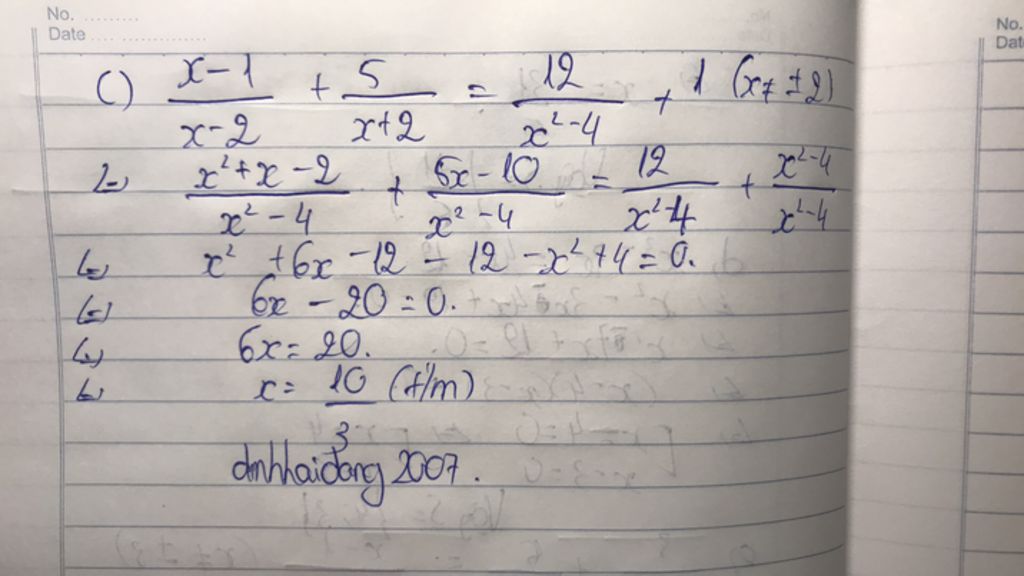 No. ..........
Date .... ...............
No.
Dat
C) \frac{x-1}{x-2} + \frac{5}{x+2} = \frac{12}{x²-4} + 1 (x ≠ ±2)
⇔ \frac{x²+x-2}{x²-4} + \frac{5x-10}{x²-4} = \frac{12}{x²-4} + \frac{x²-4}{x²-4}
⇔ x² +6x -12 - 12 -x² +4 = 0.
⇔ 6x - 20 = 0.
⇔ 6x = 20.
⇔ x = \frac{10}{3} (t/m)
dinhhaidang 2007.